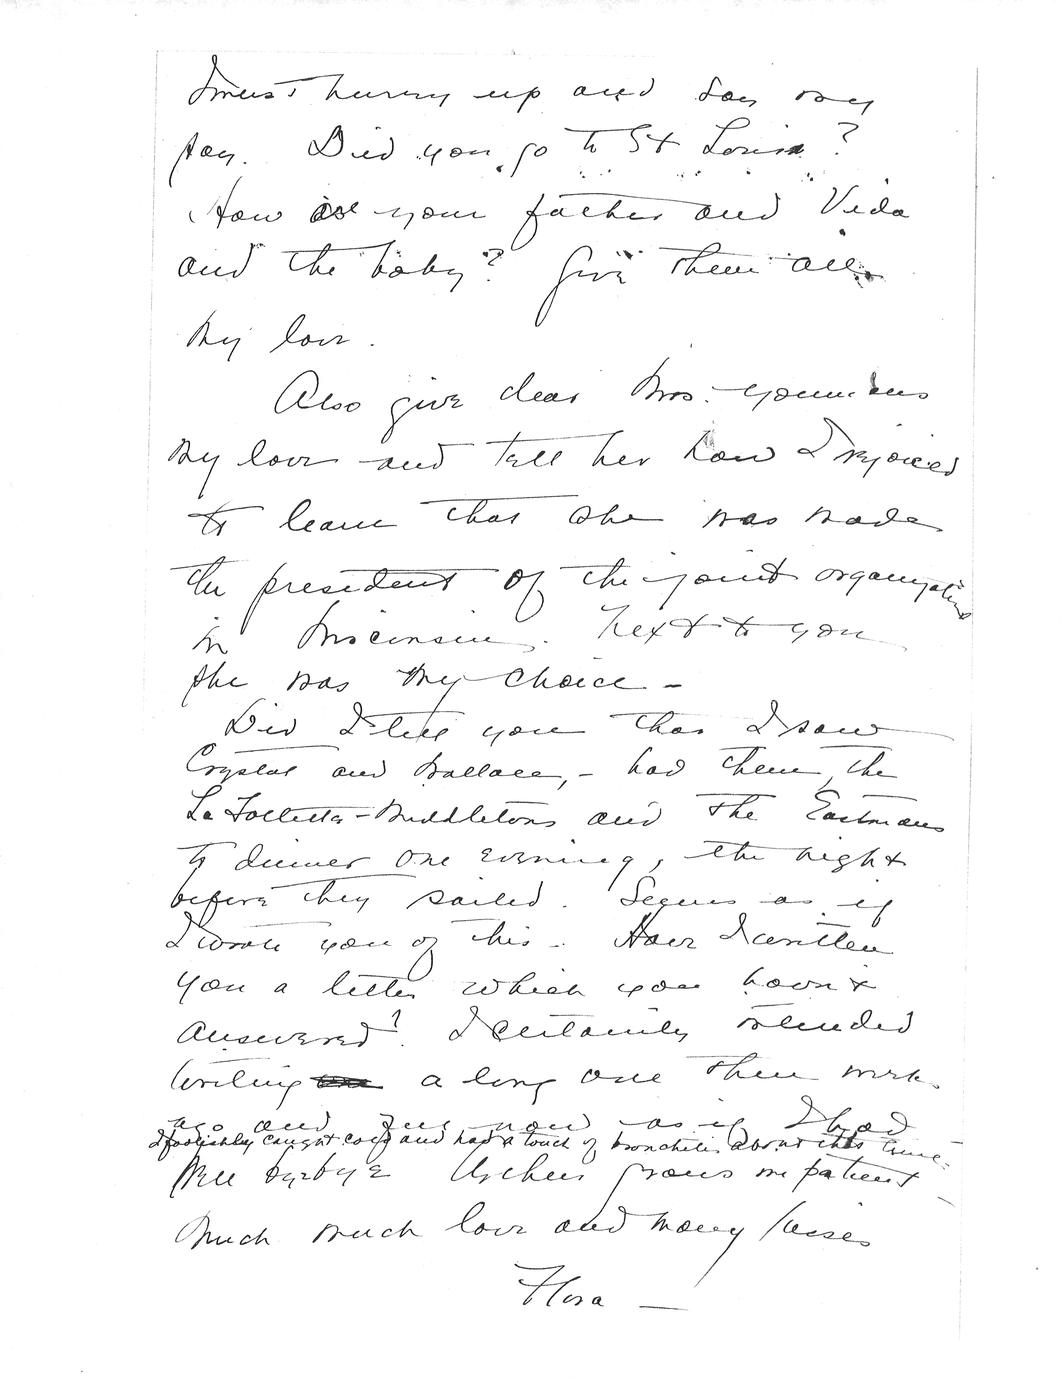 I must hurry up and say my
say. Did you go to St Louis?
How are your father and Vida
and the baby? Give them all
my love.
Also give dear Mrs. Youmans
my love and tell her how I rejoiced
to learn that she was made
the president of the joint organization
in Wisconsin. Next to you
she was my choice -
Did I tell you that I saw
Crystal and Wallace, - had them, the
La Follette-Middletons and the Eastmans
to dinner one evening, the night
before they sailed. Seems as if
I wrote you of this -. Have I written
you a letter which you havn't
answered? I certainly intended
writing a long one then week
ago and feel now as if I had
I foolishly caught cold and had a touch of bronchitis about this time -
Well bye bye Archer grows impatient
Much much love and many kisses
Flora -